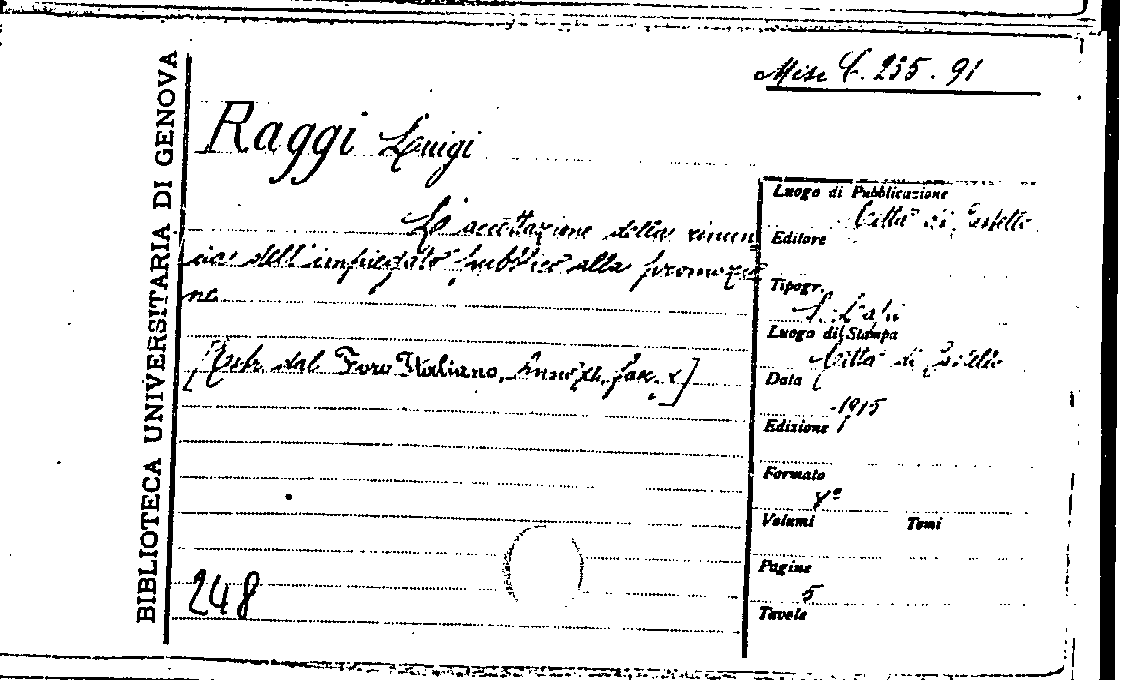 BIBLIOTECA UNIVERSITARIA DI GENOVA
Misc C. 255. 91
Raggi Luigi
La accettazione della rinun
cia dell'impiegato pubblico alla promozio
ne
[Estr. dal Foro Italiano, Anno fasc. X]
248
Luogo di Pubblicazione
Città di Castello
Editore
Tipogr.
S. Lapi
Luogo di Stampa
Città di Castello
Data
1915
Edizione
Formato
8º
Volumi Tomi
Pagine
5
Tavole